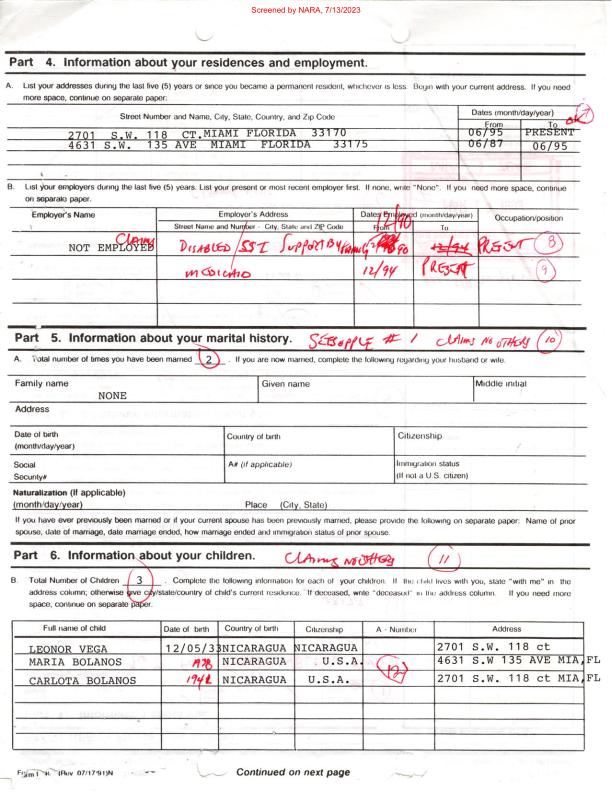 Screened by NARA, 7/13/2023
Part 4. Information about your residences and employment.
A. List your addresses during the last five (5) years or since you became a permanent resident, whichever is less. Begin with your current address. If you need
more space, continue on separate paper:
Street Number and Name, City, State, Country, and Zip Code
Dates (month/day/year)
From To
OK 7
2701 S.W. 118 CT.MIAMI FLORIDA 33170 06/95 PRESENT
4631 S.W. 135 AVE MIAMI FLORIDA 33175 06/87 06/95
B. List your employers during the last five (5) years. List your present or most recent employer first. If none, write "None". If you need more space, continue
on separate paper.
Employer's Name Employer's Address Dates Employed (month/day/year) Occupation/position
Street Name and Number - City, State and ZIP Code From To
12/90
Claims
NOT EMPLOYED DISABLED/SSI SUPPORT BY FAMILY 12/94 PRESENT 8
MEDICAID 12/94 PRESENT 9
Part 5. Information about your marital history. SEE SUPPLE # 1 CLAIMS NO OTHERS 10
A. Total number of times you have been married 2 . If you are now married, complete the following regarding your husband or wife.
Family name Given name Middle initial
NONE
Address
Date of birth Country of birth Citizenship
(month/day/year)
Social A# (if applicable) Immigration status
Security# (If not a U.S. citizen)
Naturalization (If applicable)
(month/day/year) Place (City, State)
If you have ever previously been married or if your current spouse has been previously married, please provide the following on separate paper: Name of prior
spouse, date of marriage, date marriage ended, how marriage ended and immigration status of prior spouse.
Part 6. Information about your children. CLAIMS NO OTHERS 11
B. Total Number of Children 3 . Complete the following information for each of your children. If the child lives with you, state "with me" in the
address column; otherwise give city/state/country of child's current residence. If deceased, write "deceased" in the address column. If you need more
space, continue on separate paper.
Full name of child Date of birth Country of birth Citizenship A - Number Address
LEONOR VEGA 12/05/33NICARAGUA NICARAGUA 2701 S.W. 118 ct
MARIA BOLANOS NICARAGUA U.S.A. 12 4631 S.W 135 AVE MIA,FL
CARLOTA BOLANOS 1942 NICARAGUA U.S.A. 2701 S.W. 118 ct MIA,FL
(Rev. 07/17/91)N Continued on next page